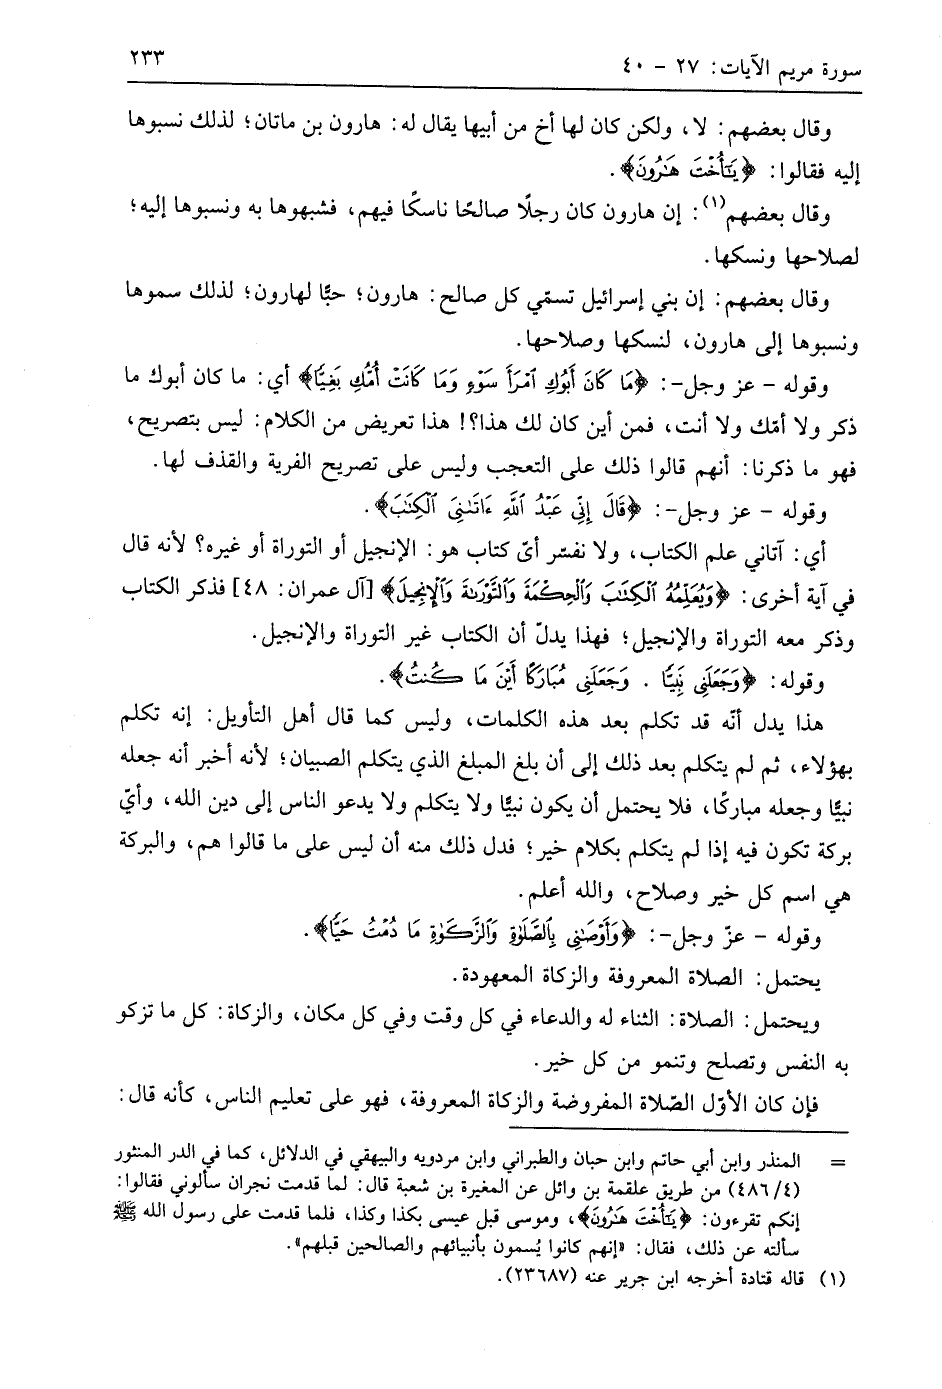 سورة مريم الآيات: ٢٧ - ٤٠
٢٣٣
وقال بعضهم: لا، ولكن كان لها أخ من أبيها يقال له: هارون بن ماتان؛ لذلك نسبوها
إليه فقالوا: ﴿يَٰٓأُخۡتَ هَٰرُونَ﴾.
وقال بعضهم(١): إن هارون كان رجلًا صالحًا ناسكًا فيهم، فشبهوها به ونسبوها إليه؛
لصلاحها ونسكها.
وقال بعضهم: إن بني إسرائيل تسمّي كل صالح: هارون؛ حبًّا لهارون؛ لذلك سموها
ونسبوها إلى هارون، لنسكها وصلاحها.
وقوله - عز وجل-: ﴿مَا كَانَ أَبُوكِ ٱمۡرَأَ سَوۡءٖ وَمَا كَانَتۡ أُمُّكِ بَغِيّٗا﴾ أي: ما كان أبوك ما
ذكر ولا أمّك ولا أنت، فمن أين كان لك هذا؟! هذا تعريض من الكلام: ليس بتصريح،
فهو ما ذكرنا: أنهم قالوا ذلك على التعجب وليس على تصريح الفرية والقذف لها.
وقوله - عز وجل-: ﴿قَالَ إِنِّي عَبۡدُ ٱللَّهِ ءَاتَىٰنِيَ ٱلۡكِتَٰبَ﴾.
أي: آتاني علم الكتاب، ولا نفسّر أىّ كتاب هو: الإنجيل أو التوراة أو غيره؟ لأنه قال
في آية أخرى: ﴿وَيُعَلِّمُهُ ٱلۡكِتَٰبَ وَٱلۡحِكۡمَةَ وَٱلتَّوۡرَىٰةَ وَٱلۡإِنجِيلَ﴾ [آل عمران: ٤٨] فذكر الكتاب
وذكر معه التوراة والإنجيل؛ فهذا يدلّ أن الكتاب غير التوراة والإنجيل.
وقوله: ﴿وَجَعَلَنِي نَبِيّٗا . وَجَعَلَنِي مُبَارَكًا أَيۡنَ مَا كُنتُ﴾.
هذا يدل أنّه قد تكلم بعد هذه الكلمات، وليس كما قال أهل التأويل: إنه تكلم
بهؤلاء، ثم لم يتكلم بعد ذلك إلى أن بلغ المبلغ الذي يتكلم الصبيان؛ لأنه أخبر أنه جعله
نبيًّا وجعله مباركًا، فلا يحتمل أن يكون نبيًّا ولا يتكلم ولا يدعو الناس إلى دين الله، وأيّ
بركة تكون فيه إذا لم يتكلم بكلام خير؛ فدل ذلك منه أن ليس على ما قالوا هم، والبركة
هي اسم كل خير وصلاح، والله أعلم.
وقوله - عزّ وجل-: ﴿وَأَوۡصَٰنِي بِٱلصَّلَوٰةِ وَٱلزَّكَوٰةِ مَا دُمۡتُ حَيّٗا﴾.
يحتمل: الصلاة المعروفة والزكاة المعهودة.
ويحتمل: الصلاة: الثناء له والدعاء في كل وقت وفي كل مكان، والزكاة: كل ما تزكو
به النفس وتصلح وتنمو من كل خير.
فإن كان الأوّل الصّلاة المفروضة والزكاة المعروفة، فهو على تعليم الناس، كأنه قال:
= المنذر وابن أبي حاتم وابن حبان والطبراني وابن مردويه والبيهقي في الدلائل، كما في الدر المنثور
(٤/ ٤٨٦) من طريق علقمة بن وائل عن المغيرة بن شعبة قال: لما قدمت نجران سألوني فقالوا:
إنكم تقرءون: ﴿يَٰٓأُخۡتَ هَٰرُونَ﴾، وموسى قبل عيسى بكذا وكذا، فلما قدمت على رسول الله ﷺ
سألته عن ذلك، فقال: «إنهم كانوا يُسمون بأنبيائهم والصالحين قبلهم».
(١) قاله قتادة أخرجه ابن جرير عنه (٢٣٦٨٧).